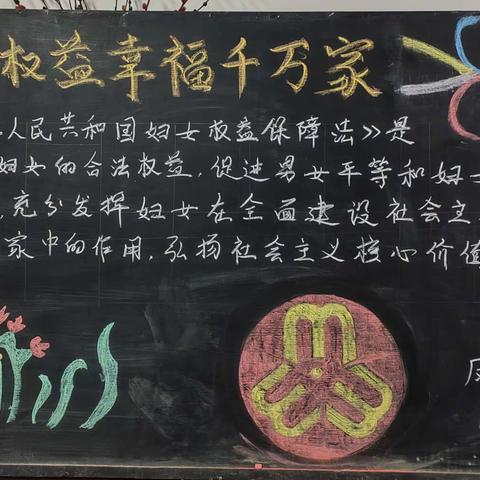 权益幸福千万家
人民共和国妇女权益保障法》是
妇女的合法权益,促进男女平等和妇女
,充分发挥妇女在全面建设社会主
家中的作用,弘扬社会主义核心价值